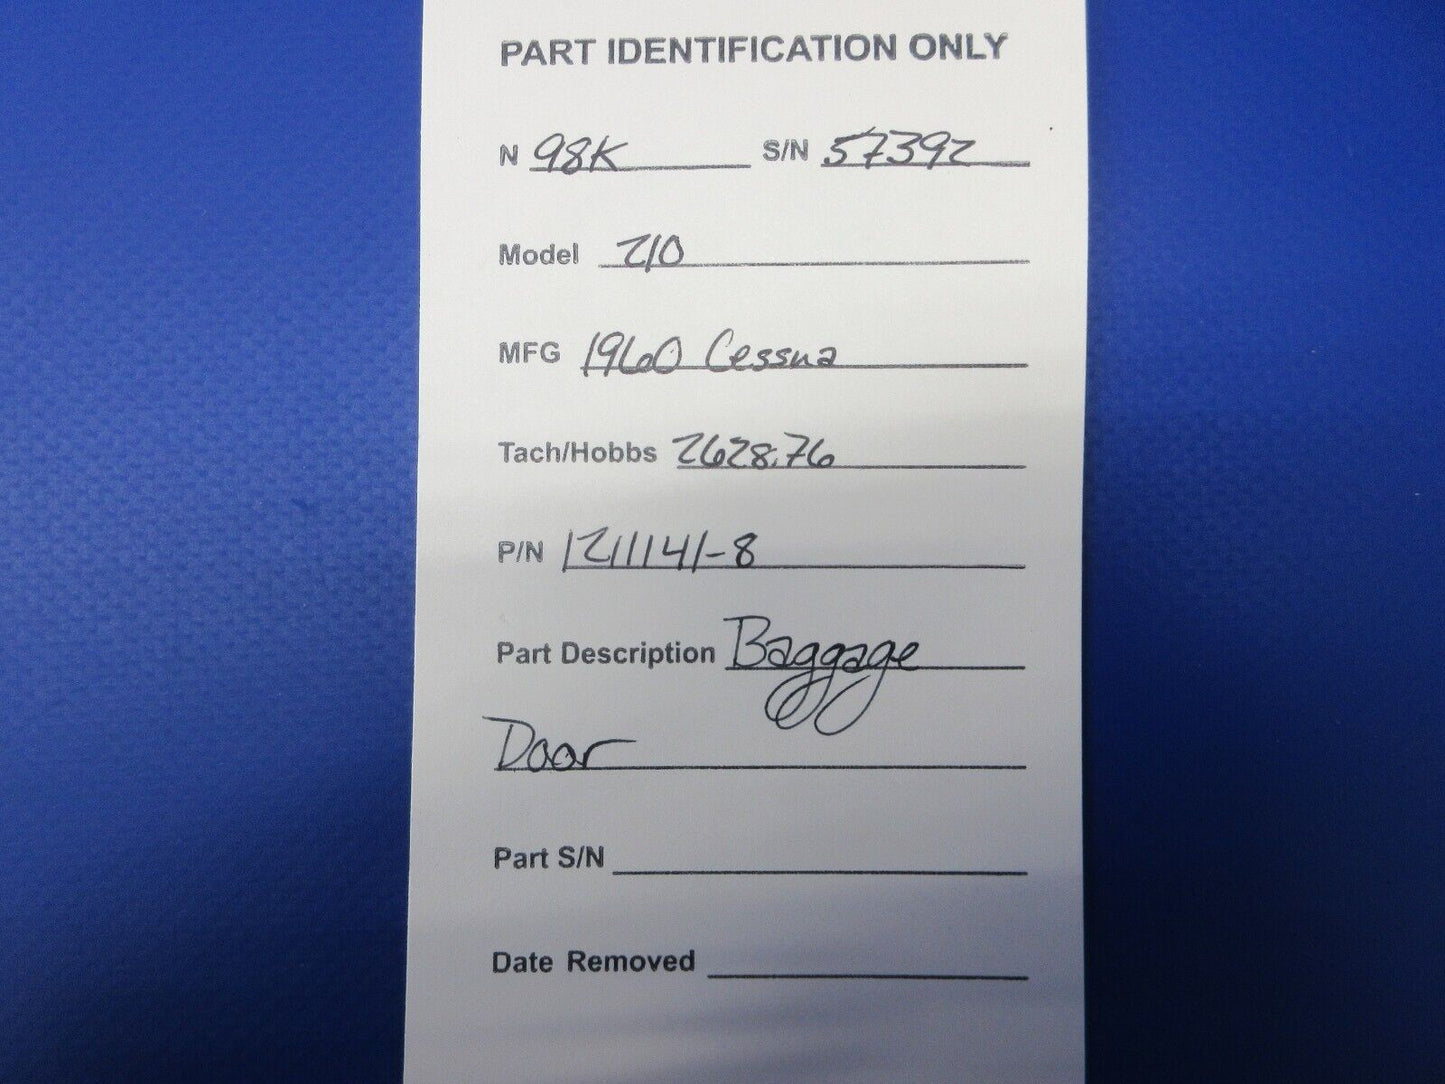 PART IDENTIFICATION ONLY
N 98K S/N 57392
Model 210
MFG 1960 Cessna
Tach/Hobbs 2628.76
P/N 1211141-8
Part Description Baggage
Door
Part S/N
Date Removed